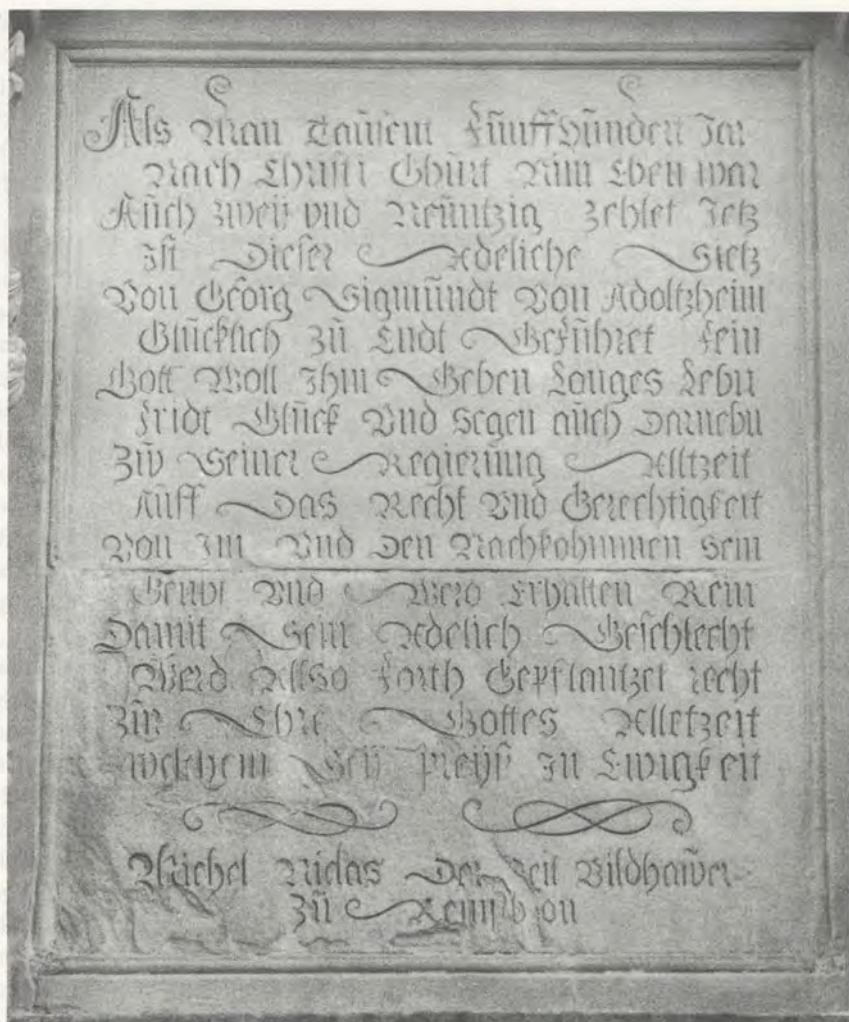 Als Man Tausent Fünffhundert Jar
Nach Christi Ghürt Nim Eben war
Aüch zweÿ vnd Neüntzig zehlet Jetz
Ist Dieser Adeliche Sietz
Von Georg Sigmündt Von Adoltzheim
Glücklich zü Endt Geführet fein
Gott Woll Ihm Geben Langes Lebn
Fridt Glück Vnd Segen aüch Darnebn
Zuv Seiner Regierüng Alltzeit
Aüff Das Recht Vnd Gerechtigkeit
Von Im Vnd Den Nachkohmmen sein
Geubt Vnd Werd Erhalten Rein
Damit Sein Adelich Geschlecht
Werd Allso Forth Gepflantzet recht
Zür Ehre Gottes Alletzeit
welchem Seÿ Preÿß In Ewigkeit
Michel Niclas Der Zeit Bildhawer
Zü